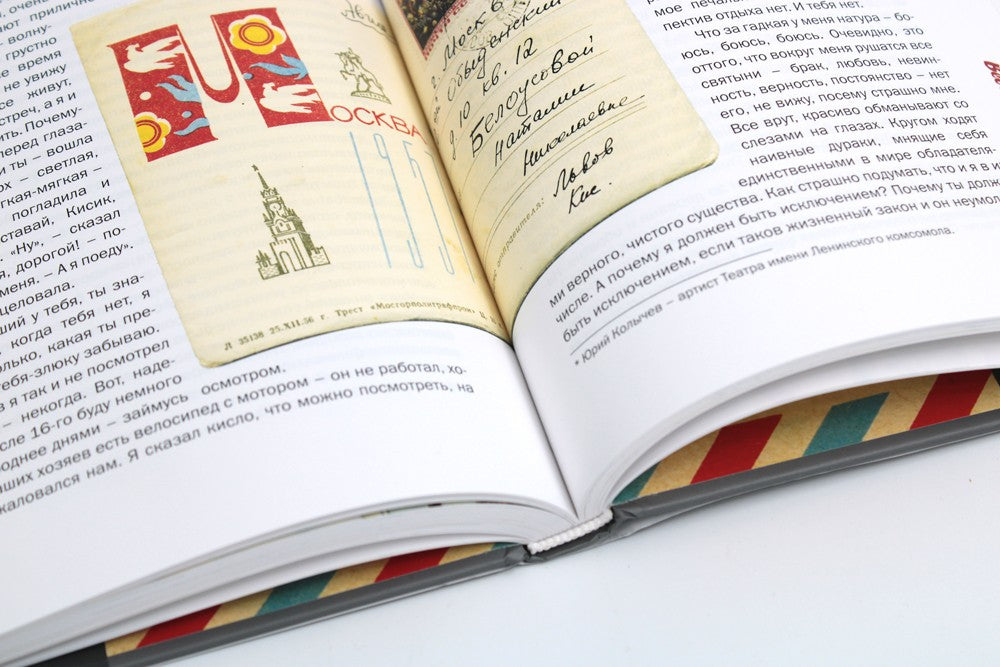 очень
ют приличне
волну-
грустно
время
не увижу
все живут,
стреч, а я и
ить. Почему-
перед глаза-
и ты – вошла
ох – светлая,
гкая-мягкая –
погладила и
ставай, Кисик,
. «Ну», – сказал
я, дорогой! – по-
меня. – А я поеду».
целовала.
ший у тебя, ты зна-
когда тебя нет, я
олько, какая ты пре-
тебя-злюку забываю.
в я так и не посмотрел
– некогда. Вот, наде-
сле 16-го буду немного
боднее днями – займусь осмотром.
аших хозяев есть велосипед с мотором – он не работал, хо-
жаловался нам. Я сказал кисло, что можно посмотреть, на
Авиа
МОСКВА
1957
Л 35138 25.XII-56 г. Трест «Мосгорполиграфпром» Ц.
г. Москва
Обыденский
д. 10 кв. 12
Белоусовой
Наталии
Николаевне.
отправителя: Львов
Кис.
мое печал
пектив отдыха нет. И тебя нет.
Что за гадкая у меня натура – бо-
юсь, боюсь, боюсь. Очевидно, это
оттого, что вокруг меня рушатся все
святыни – брак, любовь, невин-
ность, верность, постоянство – нет
его, не вижу, посему страшно мне.
Все врут, красиво обманывают со
слезами на глазах. Кругом ходят
наивные дураки, мнящие себя
единственными в мире обладателя-
ми верного, чистого существа. Как страшно подумать, что и я в и
числе. А почему я должен быть исключением? Почему ты долж
быть исключением, если таков жизненный закон и он неумол
* Юрий Колычев – артист Театра имени Ленинского комсомола.